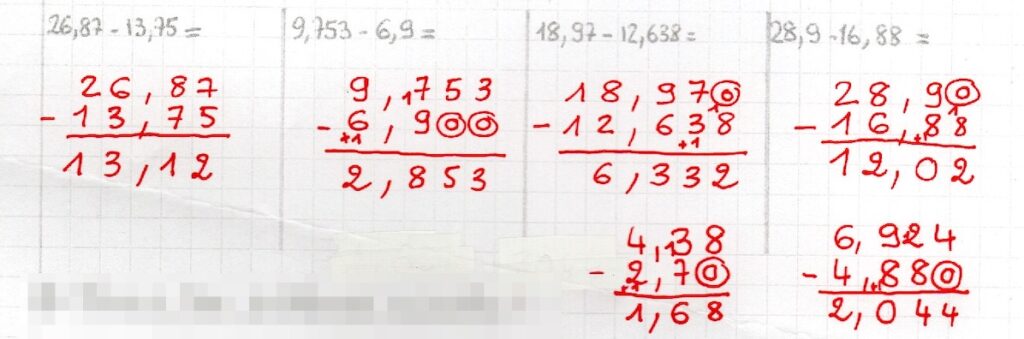 26,87 - 13,75 =
26,87
- 13,75
13,12
9,753 - 6,9 =
9,1753
- +16,900
2,853
18,97 - 12,638 =
18,970
- 12,63+18
6,332
28,9 - 16,88 =
28,910
- 16,+188
12,02
4,138
- +12,70
1,68
6,924
- 4,+1880
2,044